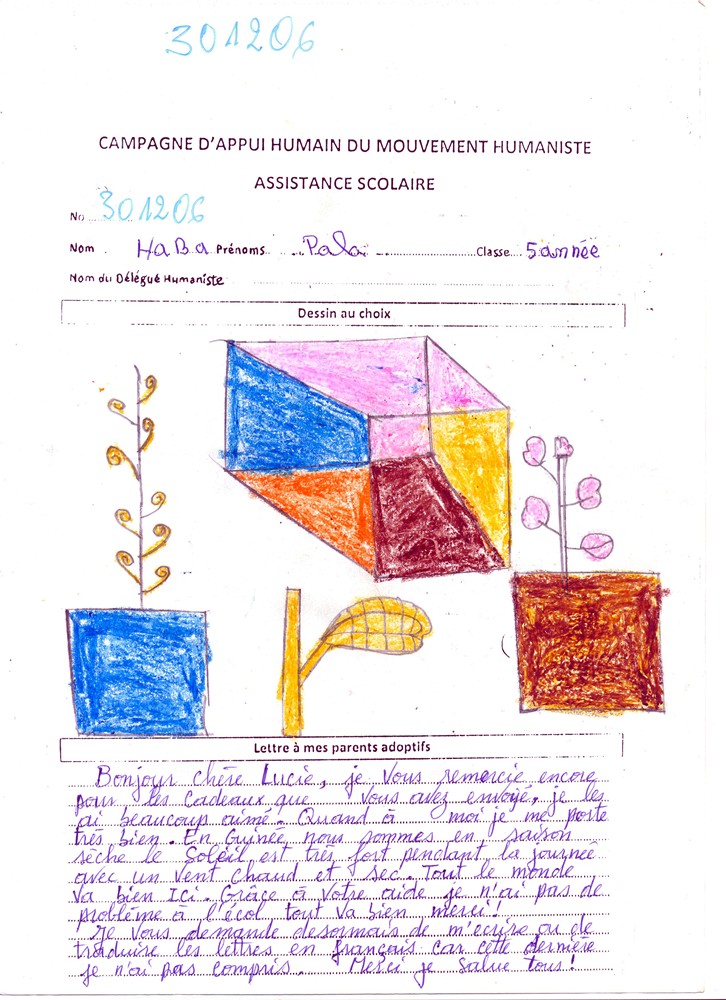 301206
CAMPAGNE D'APPUI HUMAIN DU MOUVEMENT HUMANISTE
ASSISTANCE SCOLAIRE
No 301206
Nom HaBa Prénoms Pala Classe 5 année
Nom du Délégué Humaniste
Dessin au choix
Lettre à mes parents adoptifs
Bonjour chère Lucie, je vous remercie encore
pour les cadeaux que vous avez envoyé, je les
ai beaucoup aimé. Quand à moi je me porte
très bien. En Guinée nous sommes en saison
sèche le Soleil est très fort pendant la journée
avec un vent chaud et sec. Tout le monde
va bien Ici. Grâce à votre aide je n'ai pas de
problème à l'écol, tout va bien merci!
Je vous demande desormais de m'ecrire ou de
traduire les lettres en français car cette dernière
je n'ai pas compris. Merci je salue tous!